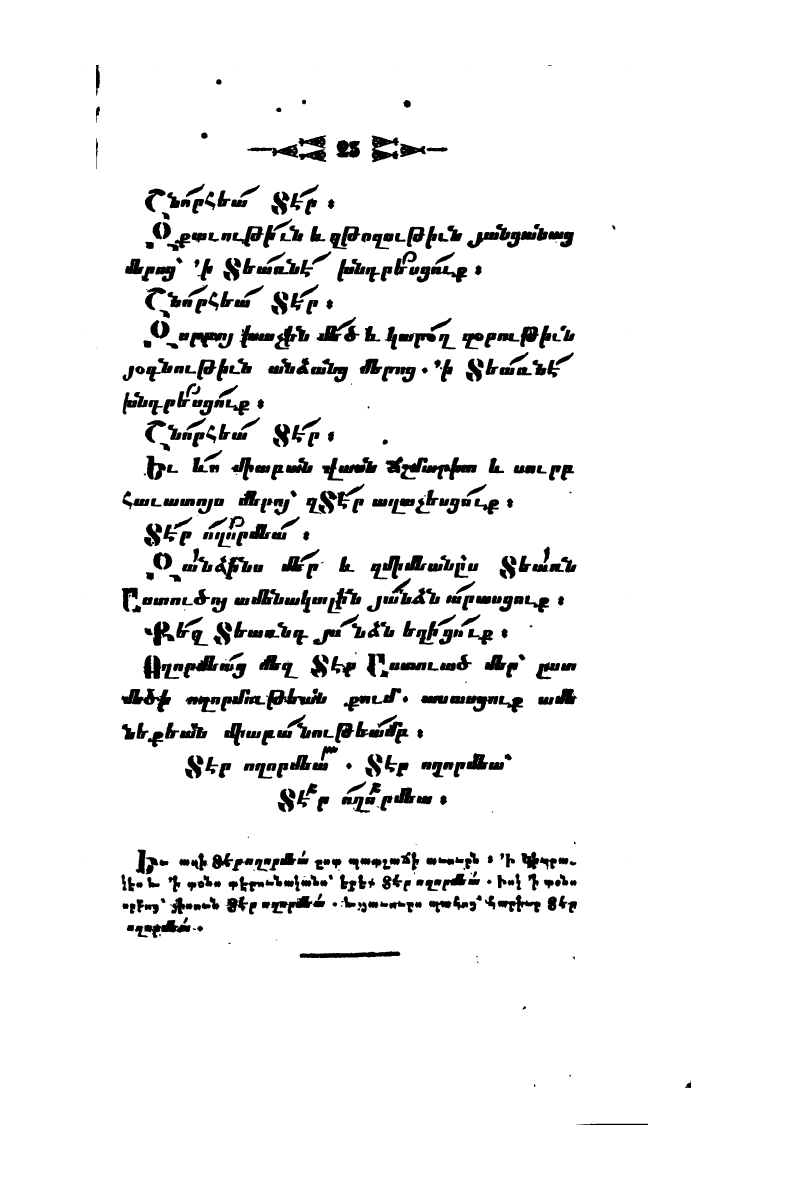 23
Շնորհեա՛ Տէ՛ր ։
Զքաւութի՛ւն և զթողութիւն յանցանաց
մերոց՝ ՚ի Տեառնէ՛ խնդրեսցո՛ւք ։
Շնորհեա՛ Տէ՛ր ։
Զսրբոյ խաչին մեծ և կարօղ զօրութիւն
յօգնութիւն անձանց մերոց . ՚ի Տեառնէ՛
խնդրեսցո՛ւք ։
Շնորհեա՛ Տէ՛ր ։
Եւ ևս միաբան վասն ճշմարիտ և սուրբ
հաւատոյս մերոյ՝ զՏէ՛ր աղաչեսցո՛ւք ։
Տէ՛ր ողորմեա՛ ։
Զանձինս մեր և զմիմեանըս Տեառն
Աստուծոյ ամենակալին յանձն արասցուք ։
Քեզ Տեառնդ յանձն եղիցո՛ւք ։
Ողորմեաց մեզ Տէր Աստուած մեր՝ ըստ
մեծի ողորմութեան քում . ասասցուք ամե
նեքեան միաբանութեամբ ։
Տէր ողորմեա՛ . Տէր ողորմեա՝
Տէ՛ր ողորմեա ։
Եւ ասի Տերողորմեա՛ ըստ պատշաճի աւուրն ։ ՚Ի
ողորմեա՛ .